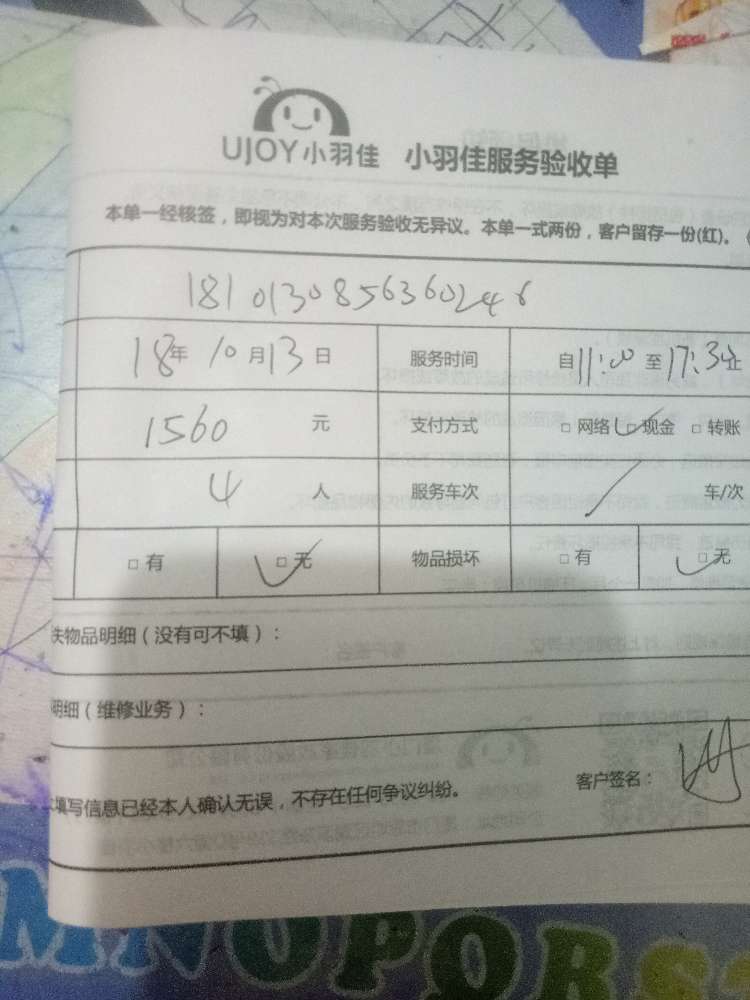 UJOY小羽佳 小羽佳服务验收单
本单一经核签，即视为对本次服务验收无异议。本单一式两份，客户留存一份(红)。
1810130856360246
18年10月13日 服务时间 自11:00至17:30止
1560元 支付方式 □网络 □现金 □转账
4人 服务车次 / 车/次
□有 □无 物品损坏 □有 □无
失物品明细（没有可不填）：
明细（维修业务）：
填写信息已经本人确认无误，不存在任何争议纠纷。 客户签名：
MNOPQRS